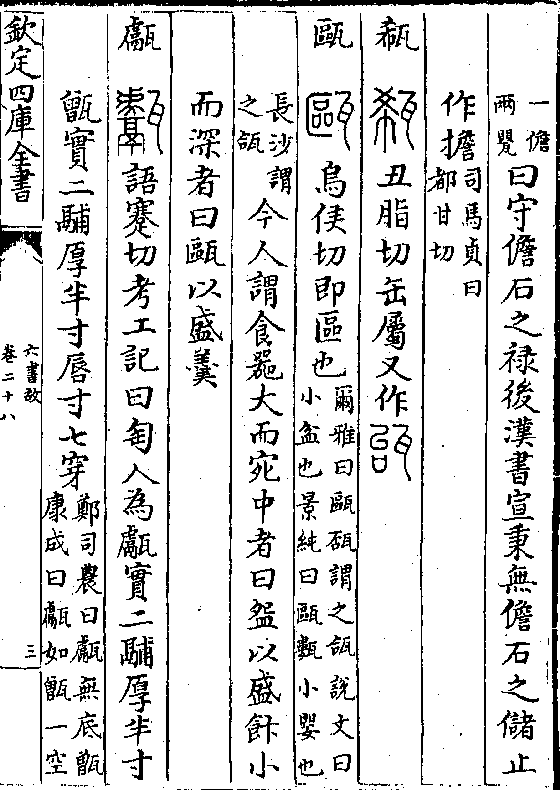 一儋兩甖曰守儋石之禄後漢書宣秉無儋石之儲止
作擔司馬貞曰都甘切
瓻 丑脂切缶屬又作
甌 烏侯切即區也爾雅曰甌瓿謂之瓵説文曰小盆也景純曰甌甊小甖也
長沙謂之瓵今人謂食器大而宛中者曰盌以盛餅小
而深者曰甌以盛羹
甗 語蹇切考工記曰匋人為甗實二鬴厚半寸
甑實二鬴厚半寸脣寸七穿鄭司農曰甗無底甑康成曰甗如甑一空
欽定四庫全書
六書故
卷二十八
三